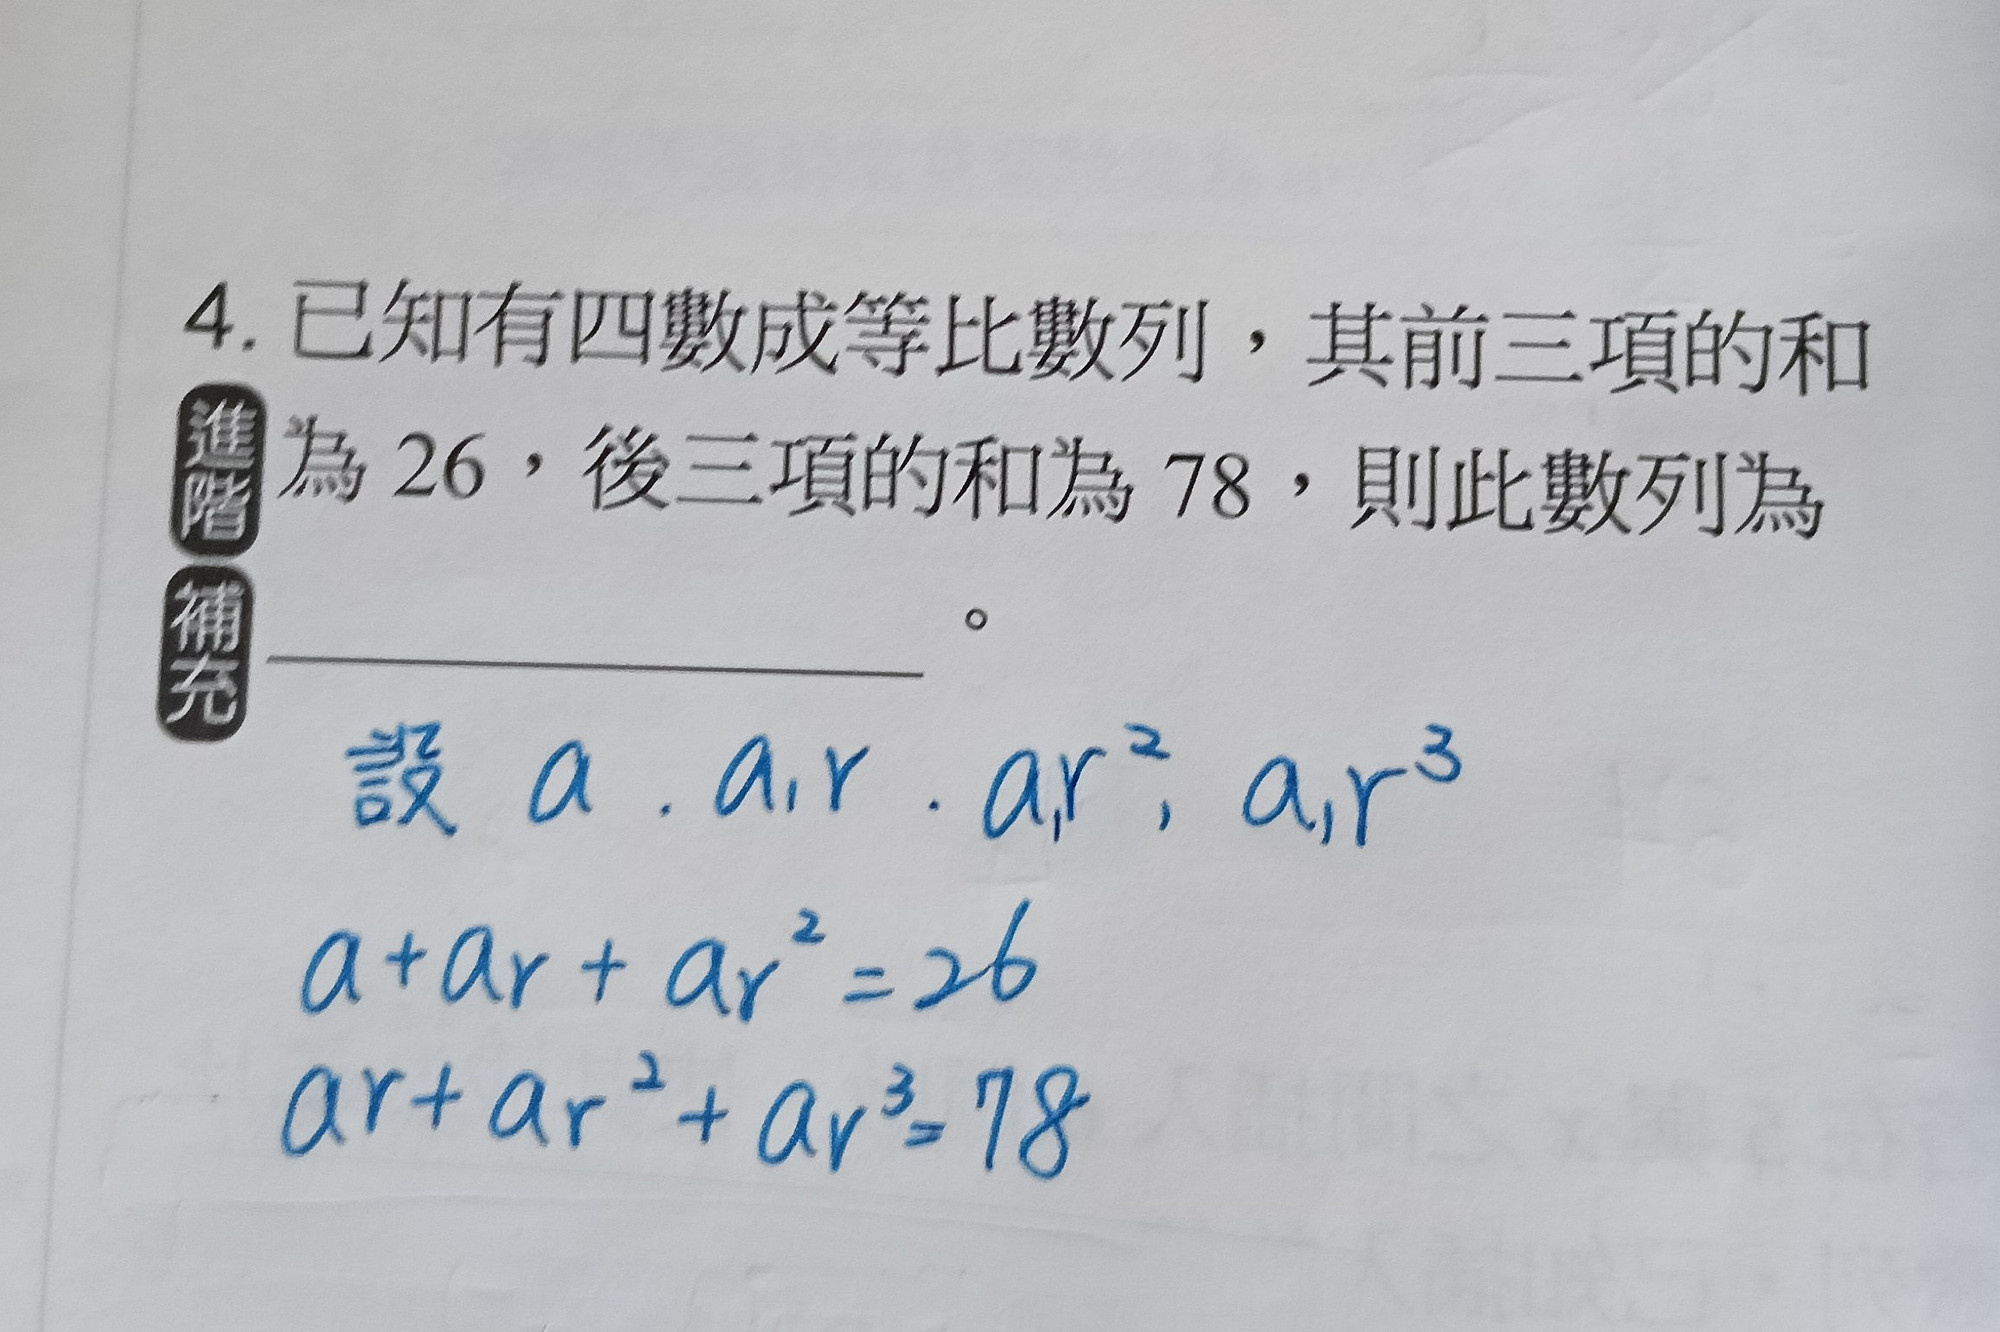 4. 已知有四數成等比數列，其前三項的和
進階 為 26，後三項的和為 78，則此數列為
補充 ________。
設 a . a₁r . a₁r², a₁r³
a+ar+ar²=26
ar+ar²+ar³=78